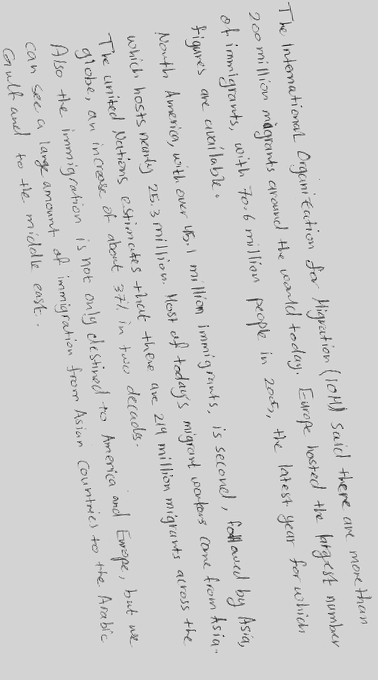 The International Organization for Migration (IOM) said there are more than
200 million migrants around the world today. Europe hosted the largest number
of immigrants, with 70.6 million people in 2005, the latest year for which
figures are available.
North America, with over 45.1 million immigrants, is second, followed by Asia,
which hosts nearly 25.3 million. Most of today's migrant workers come from Asia.
The United Nations estimates that there are 214 million migrants across the
globe, an increase of about 37% in two decades.
Also the immigration is not only destined to America and Europe, but we
can see a large amount of immigration from Asian Countries to the Arabic
Gulf and to the middle east.